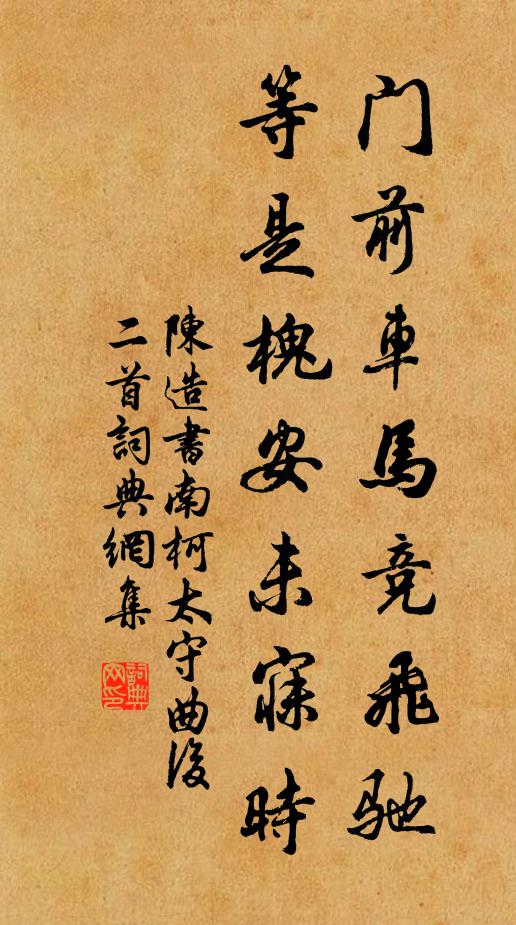 门前車馬竞飛馳
等是槐安未寐時
陳造書南柯太守曲後
二首詞典網集
詞典网印